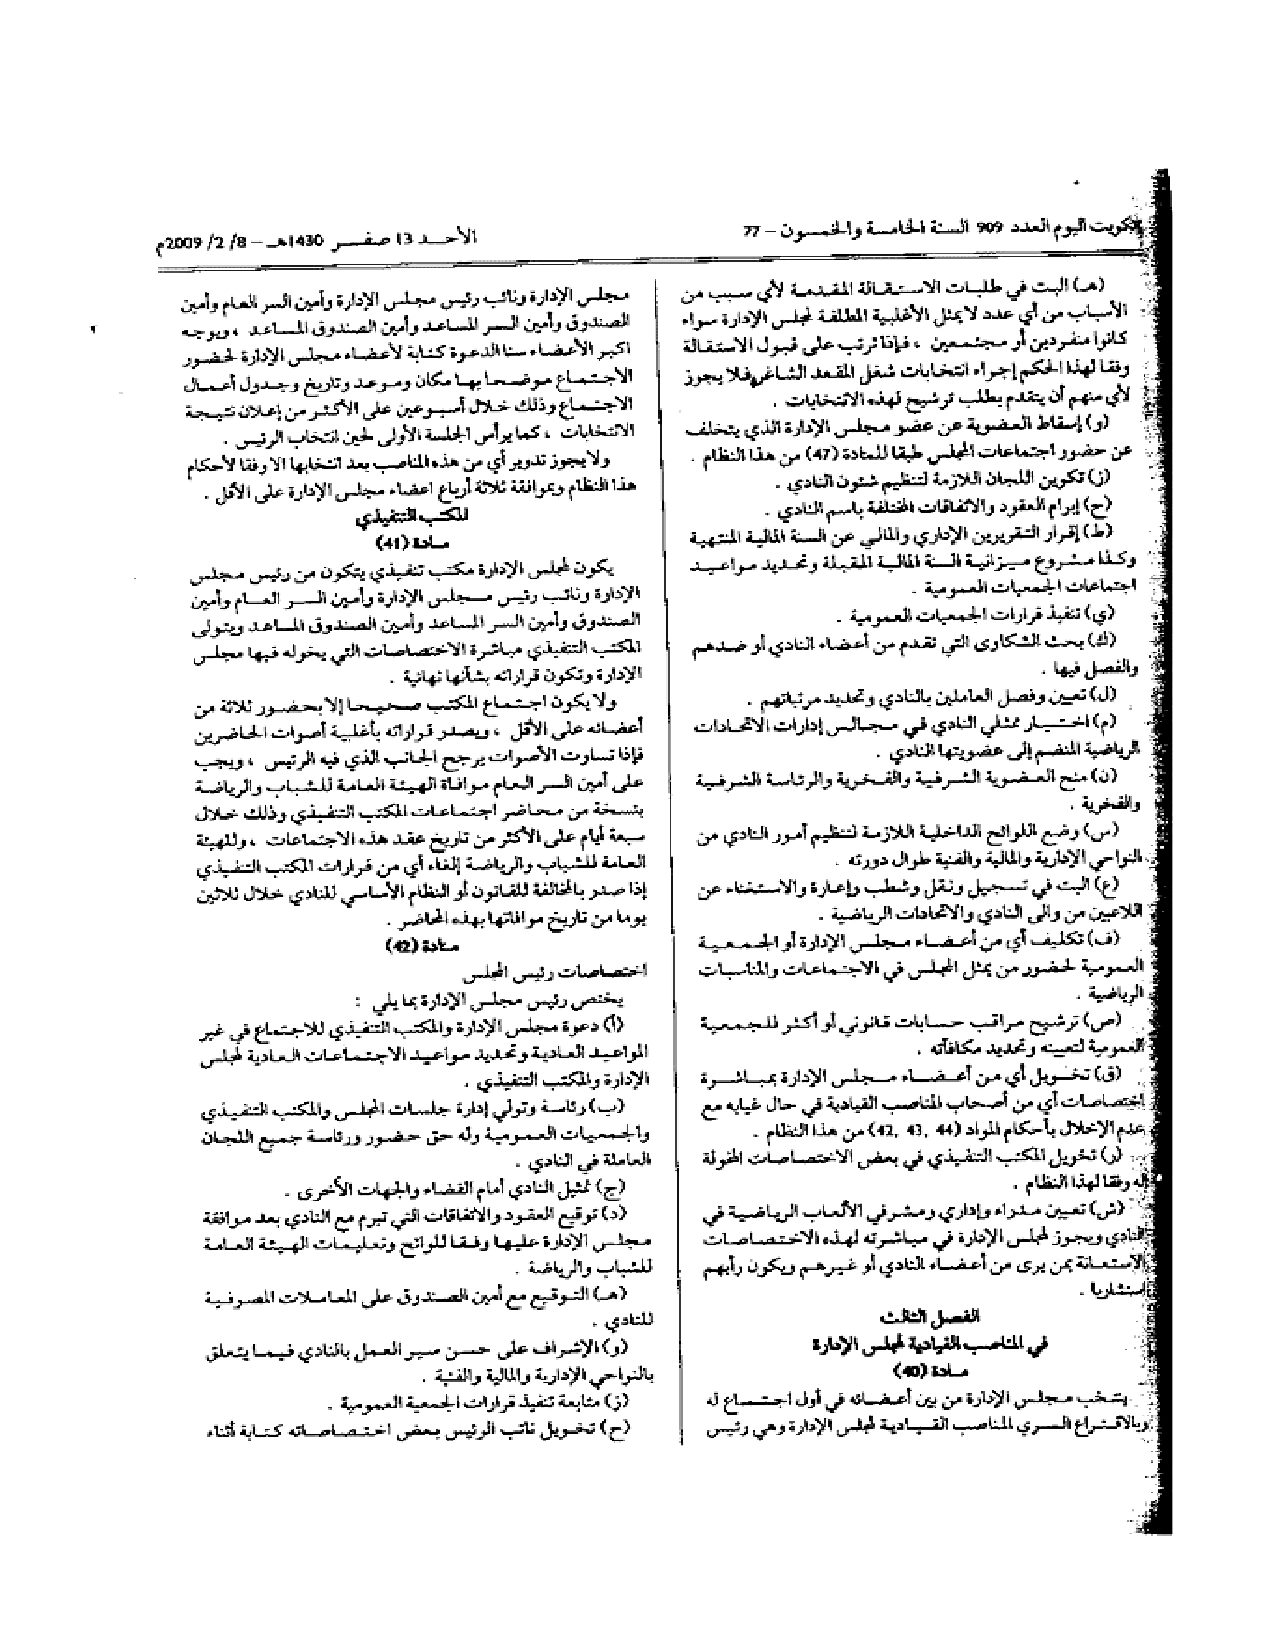 الكويت اليوم العدد 909 السنة الخامسة والخمسون – 77
الأحـــد 13 صفـــر 1430هـ – 8/ 2/ 2009م
(هـ) البت في طلبات الاستقالة المقدمة لأي سبب من
الأسباب من أي عدد لايمثل الأغلبية المطلقة لمجلس الإدارة سواء
كانوا منفردين أو مجتمعين ، فإذا ترتب على قبول الاستقالة
وفقا لهذا الحكم إجراء انتخابات شغل المقعد الشاغر فلا يجوز
لأي منهم أن يتقدم بطلب ترشيح لهذه الانتخابات .
(و) إسقاط العضوية عن عضو مجلس الإدارة الذي يتخلف
عن حضور اجتماعات المجلس طبقا للمادة (47) من هذا النظام .
(ز) تكوين اللجان اللازمة لتنظيم شئون النادي .
(ح) إبرام العقود والاتفاقات المختلفة باسم النادي .
(ط) إقرار التقريرين الإداري والمالي عن السنة المالية المنتهية
وكذا مشروع ميزانية السنة المالية المقبلة وتحديد مواعيد
اجتماعات الجمعيات العمومية .
(ي) تنفيذ قرارات الجمعيات العمومية .
(ك) بحث الشكاوى التي تقدم من أعضاء النادي أو ضدهم
والفصل فيها .
(ل) تعيين وفصل العاملين بالنادي وتحديد مرتباتهم .
(م) اختيار ممثلي النادي في مجالس إدارات الاتحادات
الرياضية المنضم إلى عضويتها النادي .
(ن) منح العضوية الشرفية والفخرية والرئاسة الشرفية
والفخرية .
(س) وضع اللوائح الداخلية اللازمة لتنظيم أمور النادي من
النواحي الإدارية والمالية والفنية طوال دورته .
(ع) البت في تسجيل ونقل وشطب وإعارة والاستغناء عن
اللاعبين من والى النادي والاتحادات الرياضية .
(ف) تكليف أي من أعضاء مجلس الإدارة أو الجمعية
العمومية لحضور من يمثل المجلس في الاجتماعات والمناسبات
الرياضية .
(ص) ترشيح مراقب حسابات قانوني أو أكثر للجمعية
العمومية لتعيينه وتحديد مكافأته .
(ق) تخويل أي من أعضاء مجلس الإدارة بمباشرة
اختصاصات أي من أصحاب المناصب القيادية في حال غيابه مع
عدم الإخلال بأحكام المواد (44 ,43 ,42) من هذا النظام .
(ر) تخويل المكتب التنفيذي في بعض الاختصاصات المخولة
له وفقا لهذا النظام .
(ش) تعيين مدراء وإداري ومشرفي الألعاب الرياضية في
النادي ويجوز لمجلس الإدارة في مباشرته لهذه الاختصاصات
الاستعانة بمن يرى من أعضاء النادي أو غيرهم ويكون رأيهم
استشاريا .
الفصل الثالث
في المناصب القيادية لمجلس الإدارة
مـادة (40)
ينتخب مجلس الإدارة من بين أعضائه في أول اجتماع له
وبالاقتراع السري المناصب القيادية لمجلس الإدارة وهي رئيس
مجلس الإدارة ونائب رئيس مجلس الإدارة وأمين السر العام وأمين
الصندوق وأمين السر المساعد وأمين الصندوق المساعد ، ويوجه
اكبر الأعضاء سنا الدعوة كتابة لأعضاء مجلس الإدارة لحضور
الاجتماع موضحا بها مكان وموعد وتاريخ وجدول أعمال
الاجتماع وذلك خلال أسبوعين على الأكثر من إعلان نتيجة
الانتخابات ، كما يرأس الجلسة الأولى لحين انتخاب الرئيس .
ولا يجوز تدوير أي من هذه المناصب بعد انتخابها الا وفقا لأحكام
هذا النظام وبموافقة ثلاثة أرباع اعضاء مجلس الإدارة على الأقل .
المكتب التنفيذي
مـادة (41)
يكون لمجلس الإدارة مكتب تنفيذي يتكون من رئيس مجلس
الإدارة ونائب رئيس مجلس الإدارة وأمين السر العام وأمين
الصندوق وأمين السر المساعد وأمين الصندوق المساعد ويتولى
المكتب التنفيذي مباشرة الاختصاصات التي يخوله فيها مجلس
الإدارة وتكون قراراته بشأنها نهائية .
ولا يكون اجتماع المكتب صحيحا إلا بحضور ثلاثة من
أعضائه على الأقل ، ويصدر قراراته بأغلبية أصوات الحاضرين
فإذا تساوت الأصوات يرجح الجانب الذي فيه الرئيس ، ويجب
على أمين السر العام موافاة الهيئة العامة للشباب والرياضة
بنسخة من محاضر اجتماعات المكتب التنفيذي وذلك خلال
سبعة أيام على الأكثر من تاريخ عقد هذه الاجتماعات ، وللهيئة
العامة للشباب والرياضة إلغاء أي من قرارات المكتب التنفيذي
إذا صدر بالمخالفة للقانون أو النظام الأساسي للنادي خلال ثلاثين
يوما من تاريخ موافاتها بهذه المحاضر .
مـادة (42)
اختصاصات رئيس المجلس
يختص رئيس مجلس الإدارة بما يلي :
(أ) دعوة مجلس الإدارة والمكتب التنفيذي للاجتماع في غير
المواعيد العادية وتحديد مواعيد الاجتماعات العادية لمجلس
الإدارة والمكتب التنفيذي .
(ب) رئاسة وتولي إدارة جلسات المجلس والمكتب التنفيذي
والجمعيات العمومية وله حق حضور ورئاسة جميع اللجان
العاملة في النادي .
(ج) تمثيل النادي أمام القضاء والجهات الأخرى .
(د) توقيع العقود والاتفاقات التي تبرم مع النادي بعد موافقة
مجلس الإدارة عليها وفقا للوائح وتعليمات الهيئة العامة
للشباب والرياضة .
(هـ) التوقيع مع أمين الصندوق على المعاملات المصرفية
للنادي .
(و) الإشراف على حسن سير العمل بالنادي فيما يتعلق
بالنواحي الإدارية والمالية والفنية .
(ز) متابعة تنفيذ قرارات الجمعية العمومية .
(ح) تخويل نائب الرئيس بعض اختصاصاته كتابة أثناء